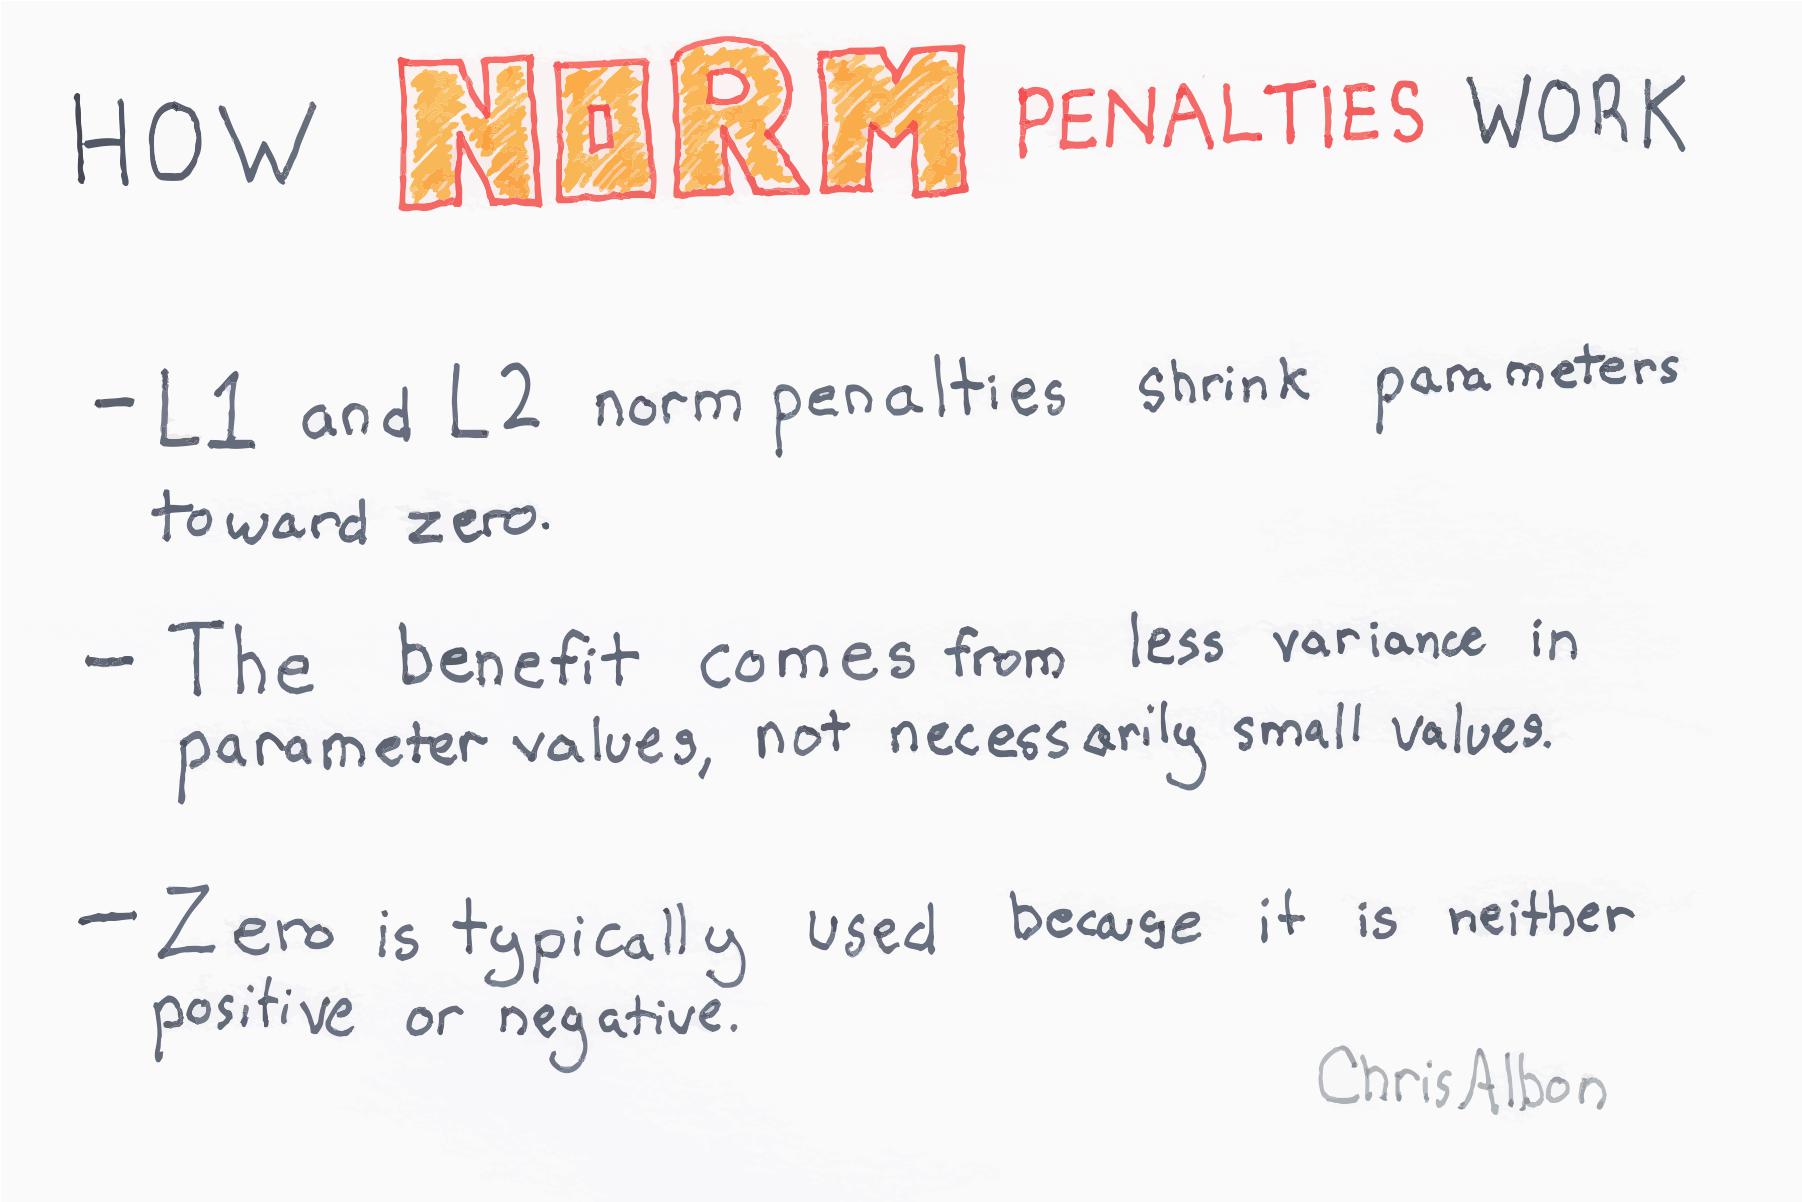 HOW NORM PENALTIES WORK
- L1 and L2 norm penalties shrink parameters
toward zero.
- The benefit comes from less variance in
parameter values, not necessarily small values.
- Zero is typically used because it is neither
positive or negative.
Chris Albon